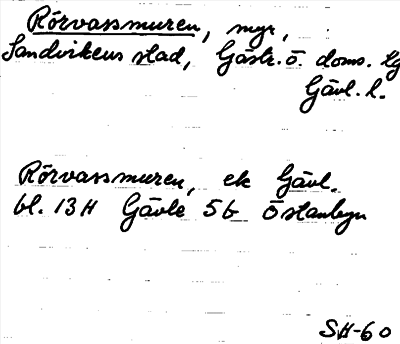 Rörvassmuren, myr,
Sandvikens stad, Gästr. ö. doms. lg
Gävl. l.
Rörvassmuren, ek Gävl.
bl. 13H Gävle 5b Östanbyn
SH-60